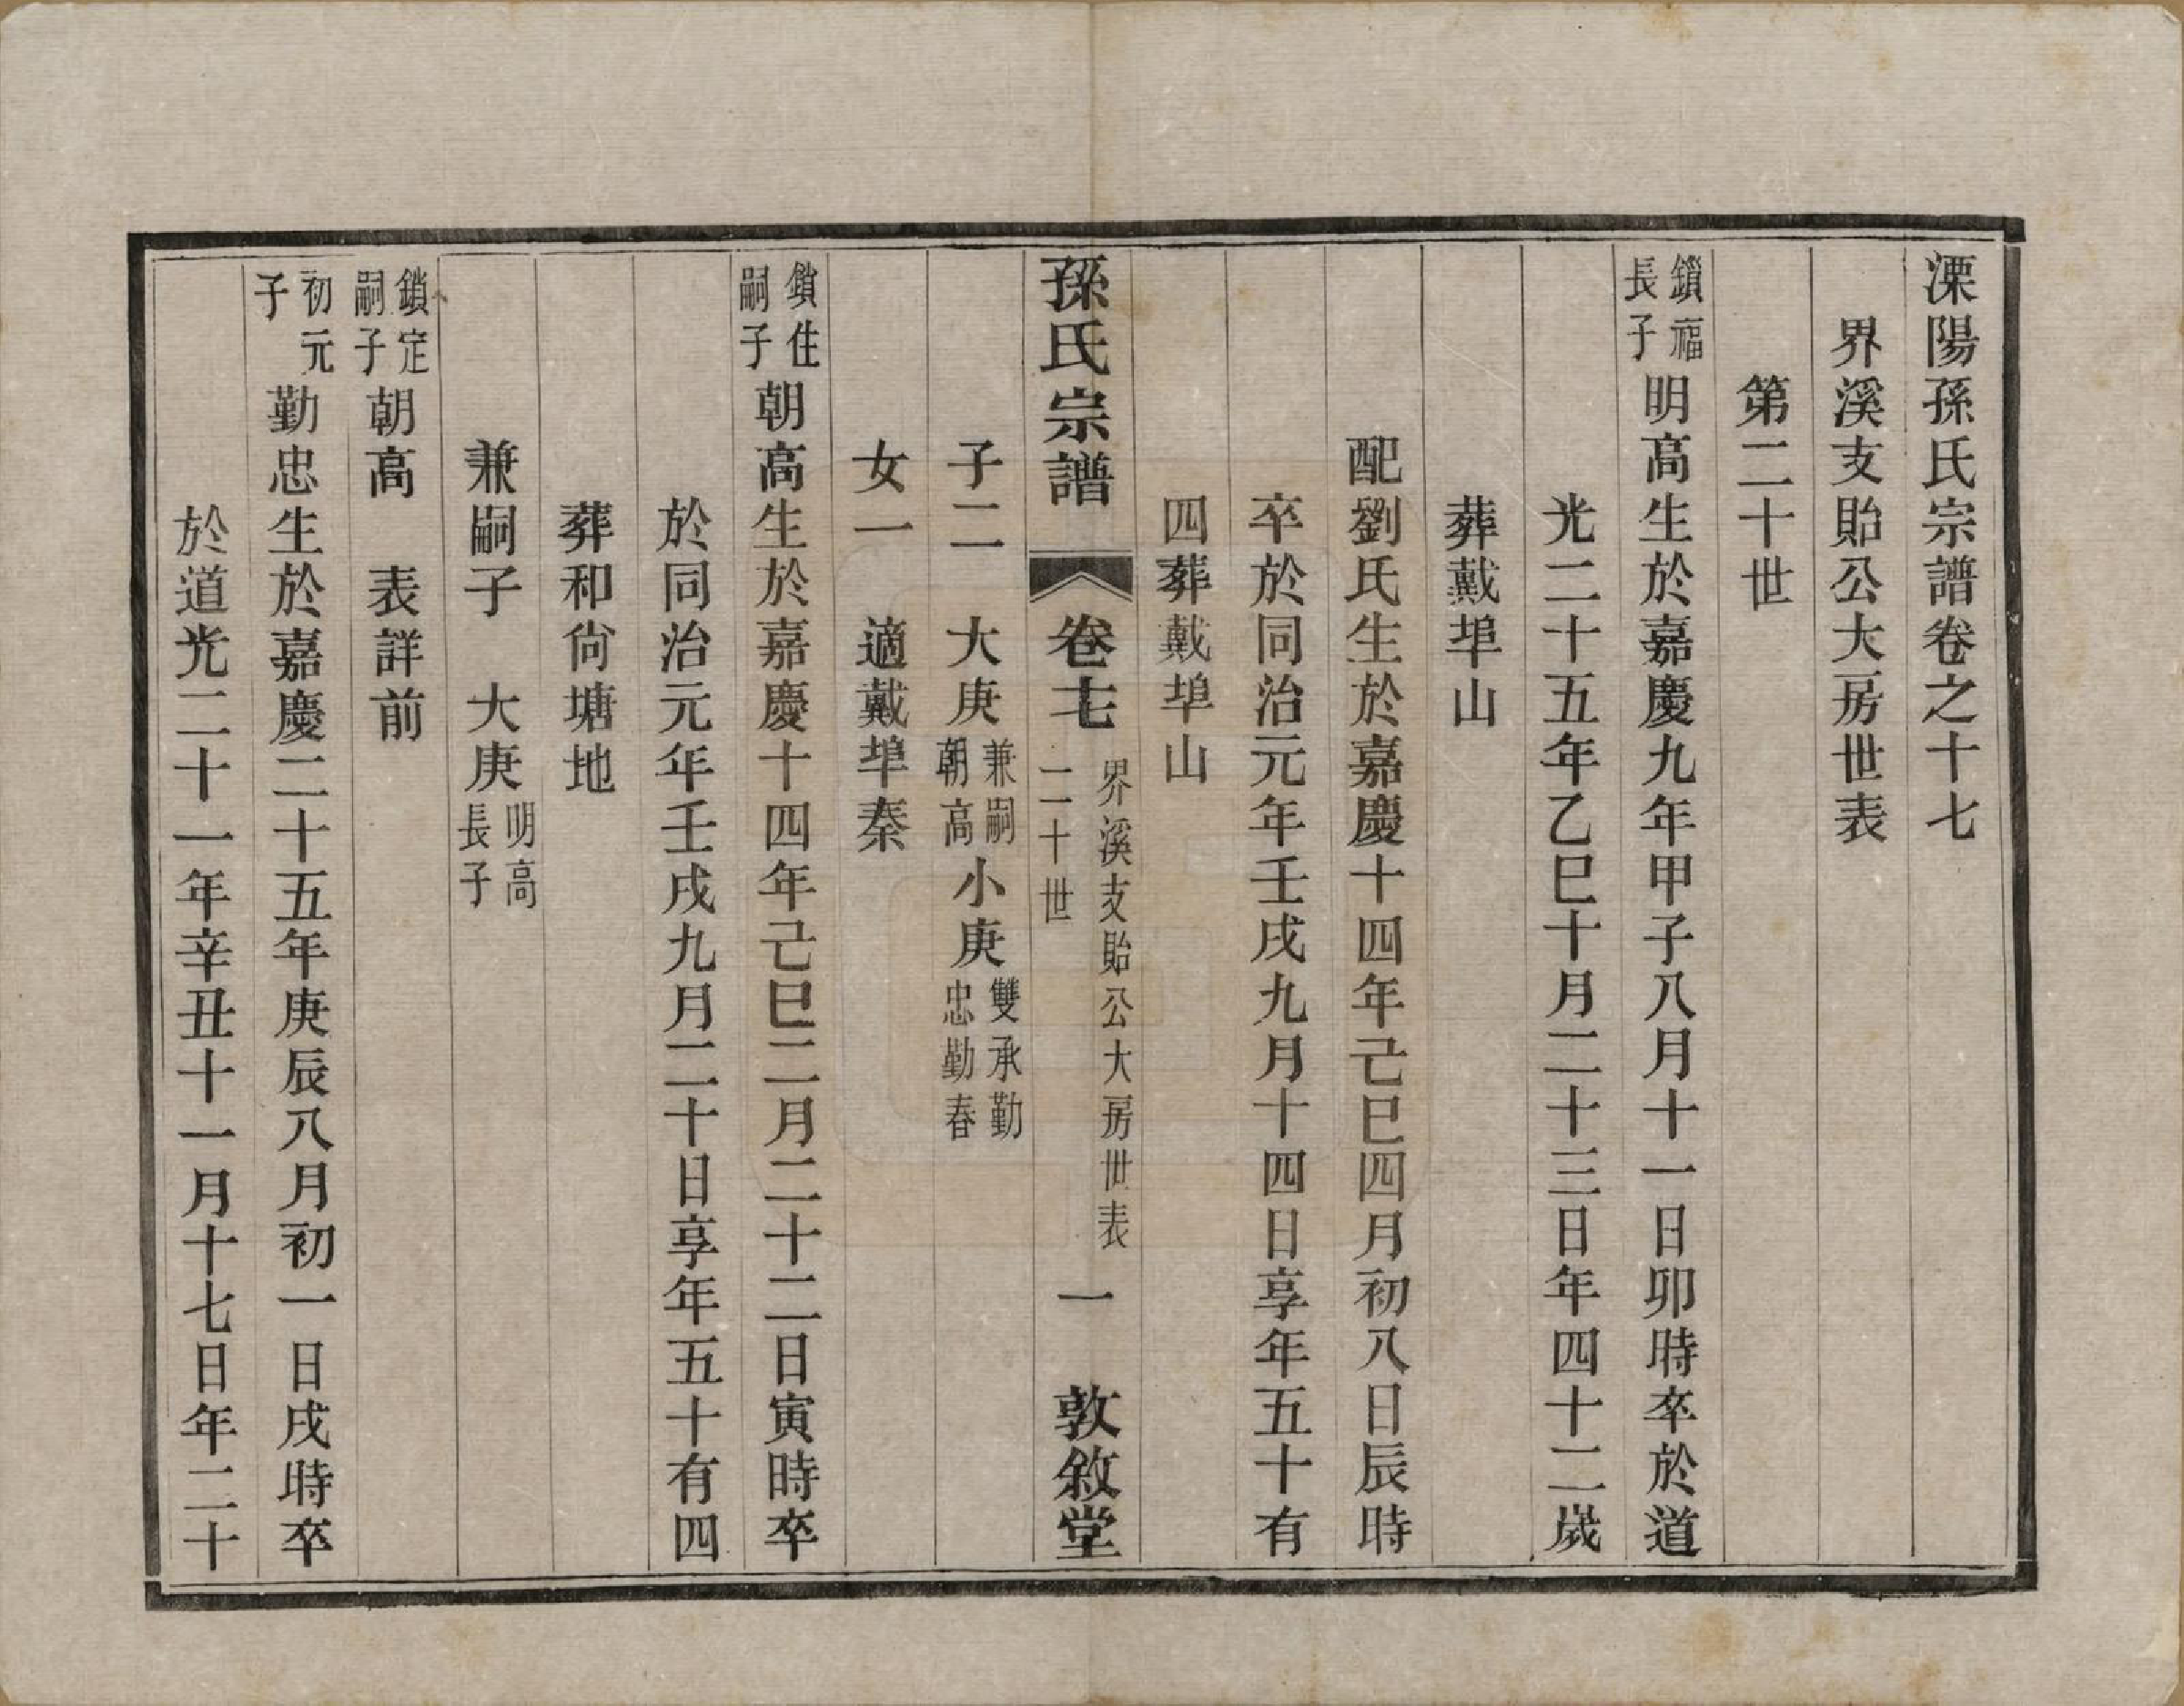 溧陽孫氏宗譜卷之十七
界溪支貽公大房世表
第二十世
鎖福長子明高生於嘉慶九年甲子八月十一日卯時卒於道
光二十五年乙巳十月二十三日年四十二歲
葬戴埠山
配劉氏生於嘉慶十四年己巳四月初八日辰時
卒於同治元年壬戌九月十四日享年五十有
四葬戴埠山
孫氏宗譜 卷十七 界溪支貽公大房世表 二十世 一 敦敘堂
子二 大庚兼嗣朝高小庚雙承勤忠勤春
女一 適戴埠秦
鎖住嗣子朝高生於嘉慶十四年己巳二月二十二日寅時卒
於同治元年壬戌九月二十日享年五十有四
葬和尙塘地
兼嗣子 大庚明高長子
鎖定嗣子朝高 表詳前
初元子勤忠生於嘉慶二十五年庚辰八月初一日戌時卒
於道光二十一年辛丑十一月十七日年二十